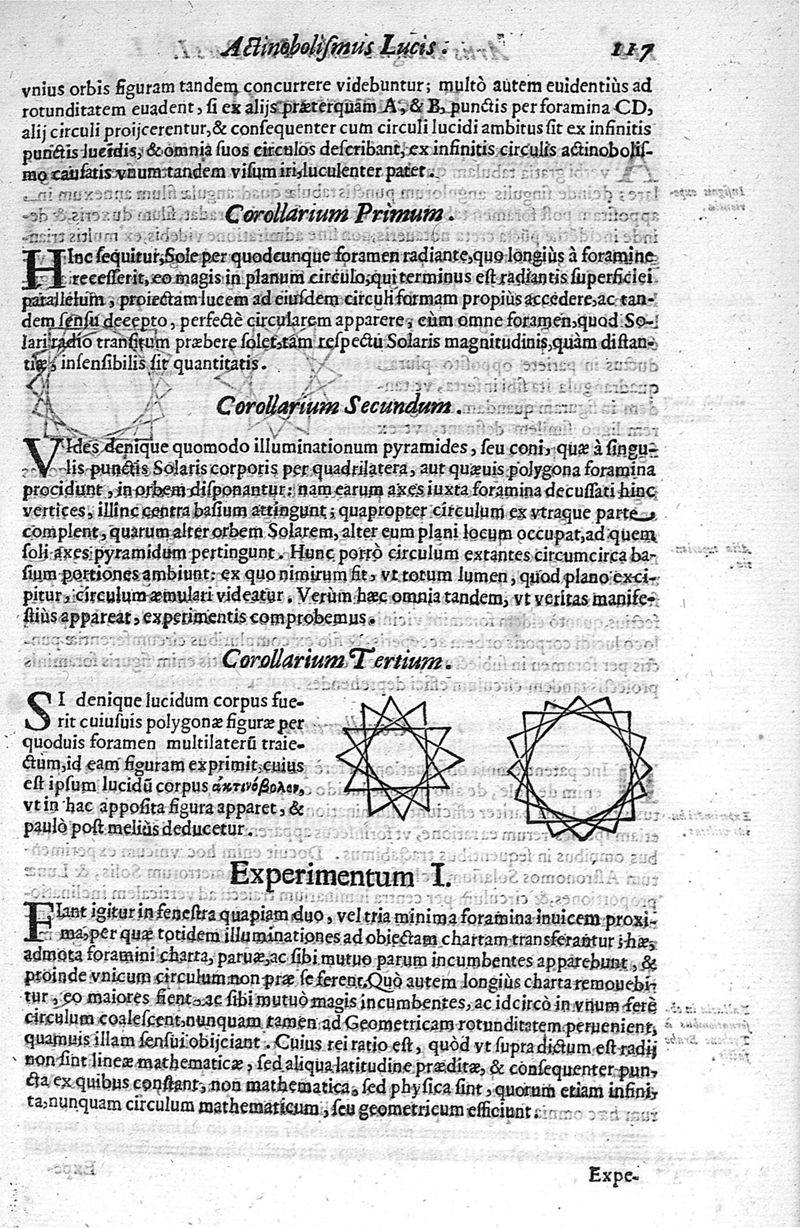 Actinobolismus Lucis. 117
vnius orbis figuram tandem concurrere videbuntur; multò autem euidentiùs ad
rotunditatem euadent, si ex alijs præterquàm A, & B, punctis per foramina CD,
alij circuli proijcerentur, & consequenter cum circuli lucidi ambitus sit ex infinitis
punctis lucidis, & omnia suos circulos describant, ex infinitis circulis actinobolis-
mo causatis vnum tandem visum iri, luculenter patet.
Corollarium Primum.
HInc sequitur, Sole per quodcunque foramen radiante, quo longiùs à foramine
recesserit, eo magis in planum circulo, qui terminus est radiantis superficiei
parallelum, proiectam lucem ad eiusdem circuli formam propiùs accedere, ac tan-
dem sensu decepto, perfectè circularem apparere, cùm omne foramen, quod So-
lari radio transitum præbere solet, tàm respectu Solaris magnitudinis, quàm distan-
tiæ, insensibilis sit quantitatis.
Corollarium Secundum.
VIdes denique quomodo illuminationum pyramides, seu coni, quæ à singu-
lis punctis Solaris corporis per quadrilatera, aut quæuis polygona foramina
procidunt, in orbem disponantur: nam earum axes iuxta foramina decussati hinc
vertices, illinc centra basium attingunt; quapropter circulum ex vtraque parte
complent, quarum alter orbem Solarem, alter eum plani locum occupat, ad quem
soli axes pyramidum pertingunt. Hunc porrò circulum extantes circumcirca ba-
sium portiones ambiunt: ex quo nimirum fit, vt totum lumen, quod plano exci-
pitur, circulum æmulari videatur. Verùm hæc omnia tandem, vt veritas manife-
stiùs appareat, experimentis comprobemus.
Corollarium Tertium.
SI denique lucidum corpus fue-
rit cuiusuis polygonæ figuræ per
quoduis foramen multilaterū traie-
ctum, id eam figuram exprimit, cuius
est ipsum lucidū corpus ἀκτινόβολον,
vt in hac apposita figura apparet, &
paulò post meliùs deducetur.
Experimentum I.
FIant igitur in fenestra quapiam duo, vel tria minima foramina inuicem proxi-
ma, per quæ totidem illuminationes ad obiectam chartam transferantur; hæ,
admota foramini charta, paruæ, ac sibi mutuo parum incumbentes apparebunt, &
proinde vnicum circulum non præ se ferent. Quò autem longiùs charta remouebi-
tur, eo maiores fient, ac sibi mutuò magis incumbentes, ac idcircò in vnum ferè
circulum coalescent, nunquam tamen ad Geometricam rotunditatem peruenient,
quamuis illam sensui obijciant. Cuius rei ratio est, quòd vt supra dictum est radij
non sint lineæ mathematicæ, sed aliqua latitudine præditæ, & consequenter pun-
cta ex quibus constant, non mathematica, sed physica sint, quorum etiam infini-
ta, nunquam circulum mathematicum, seu geometricum efficiunt.
Expe-